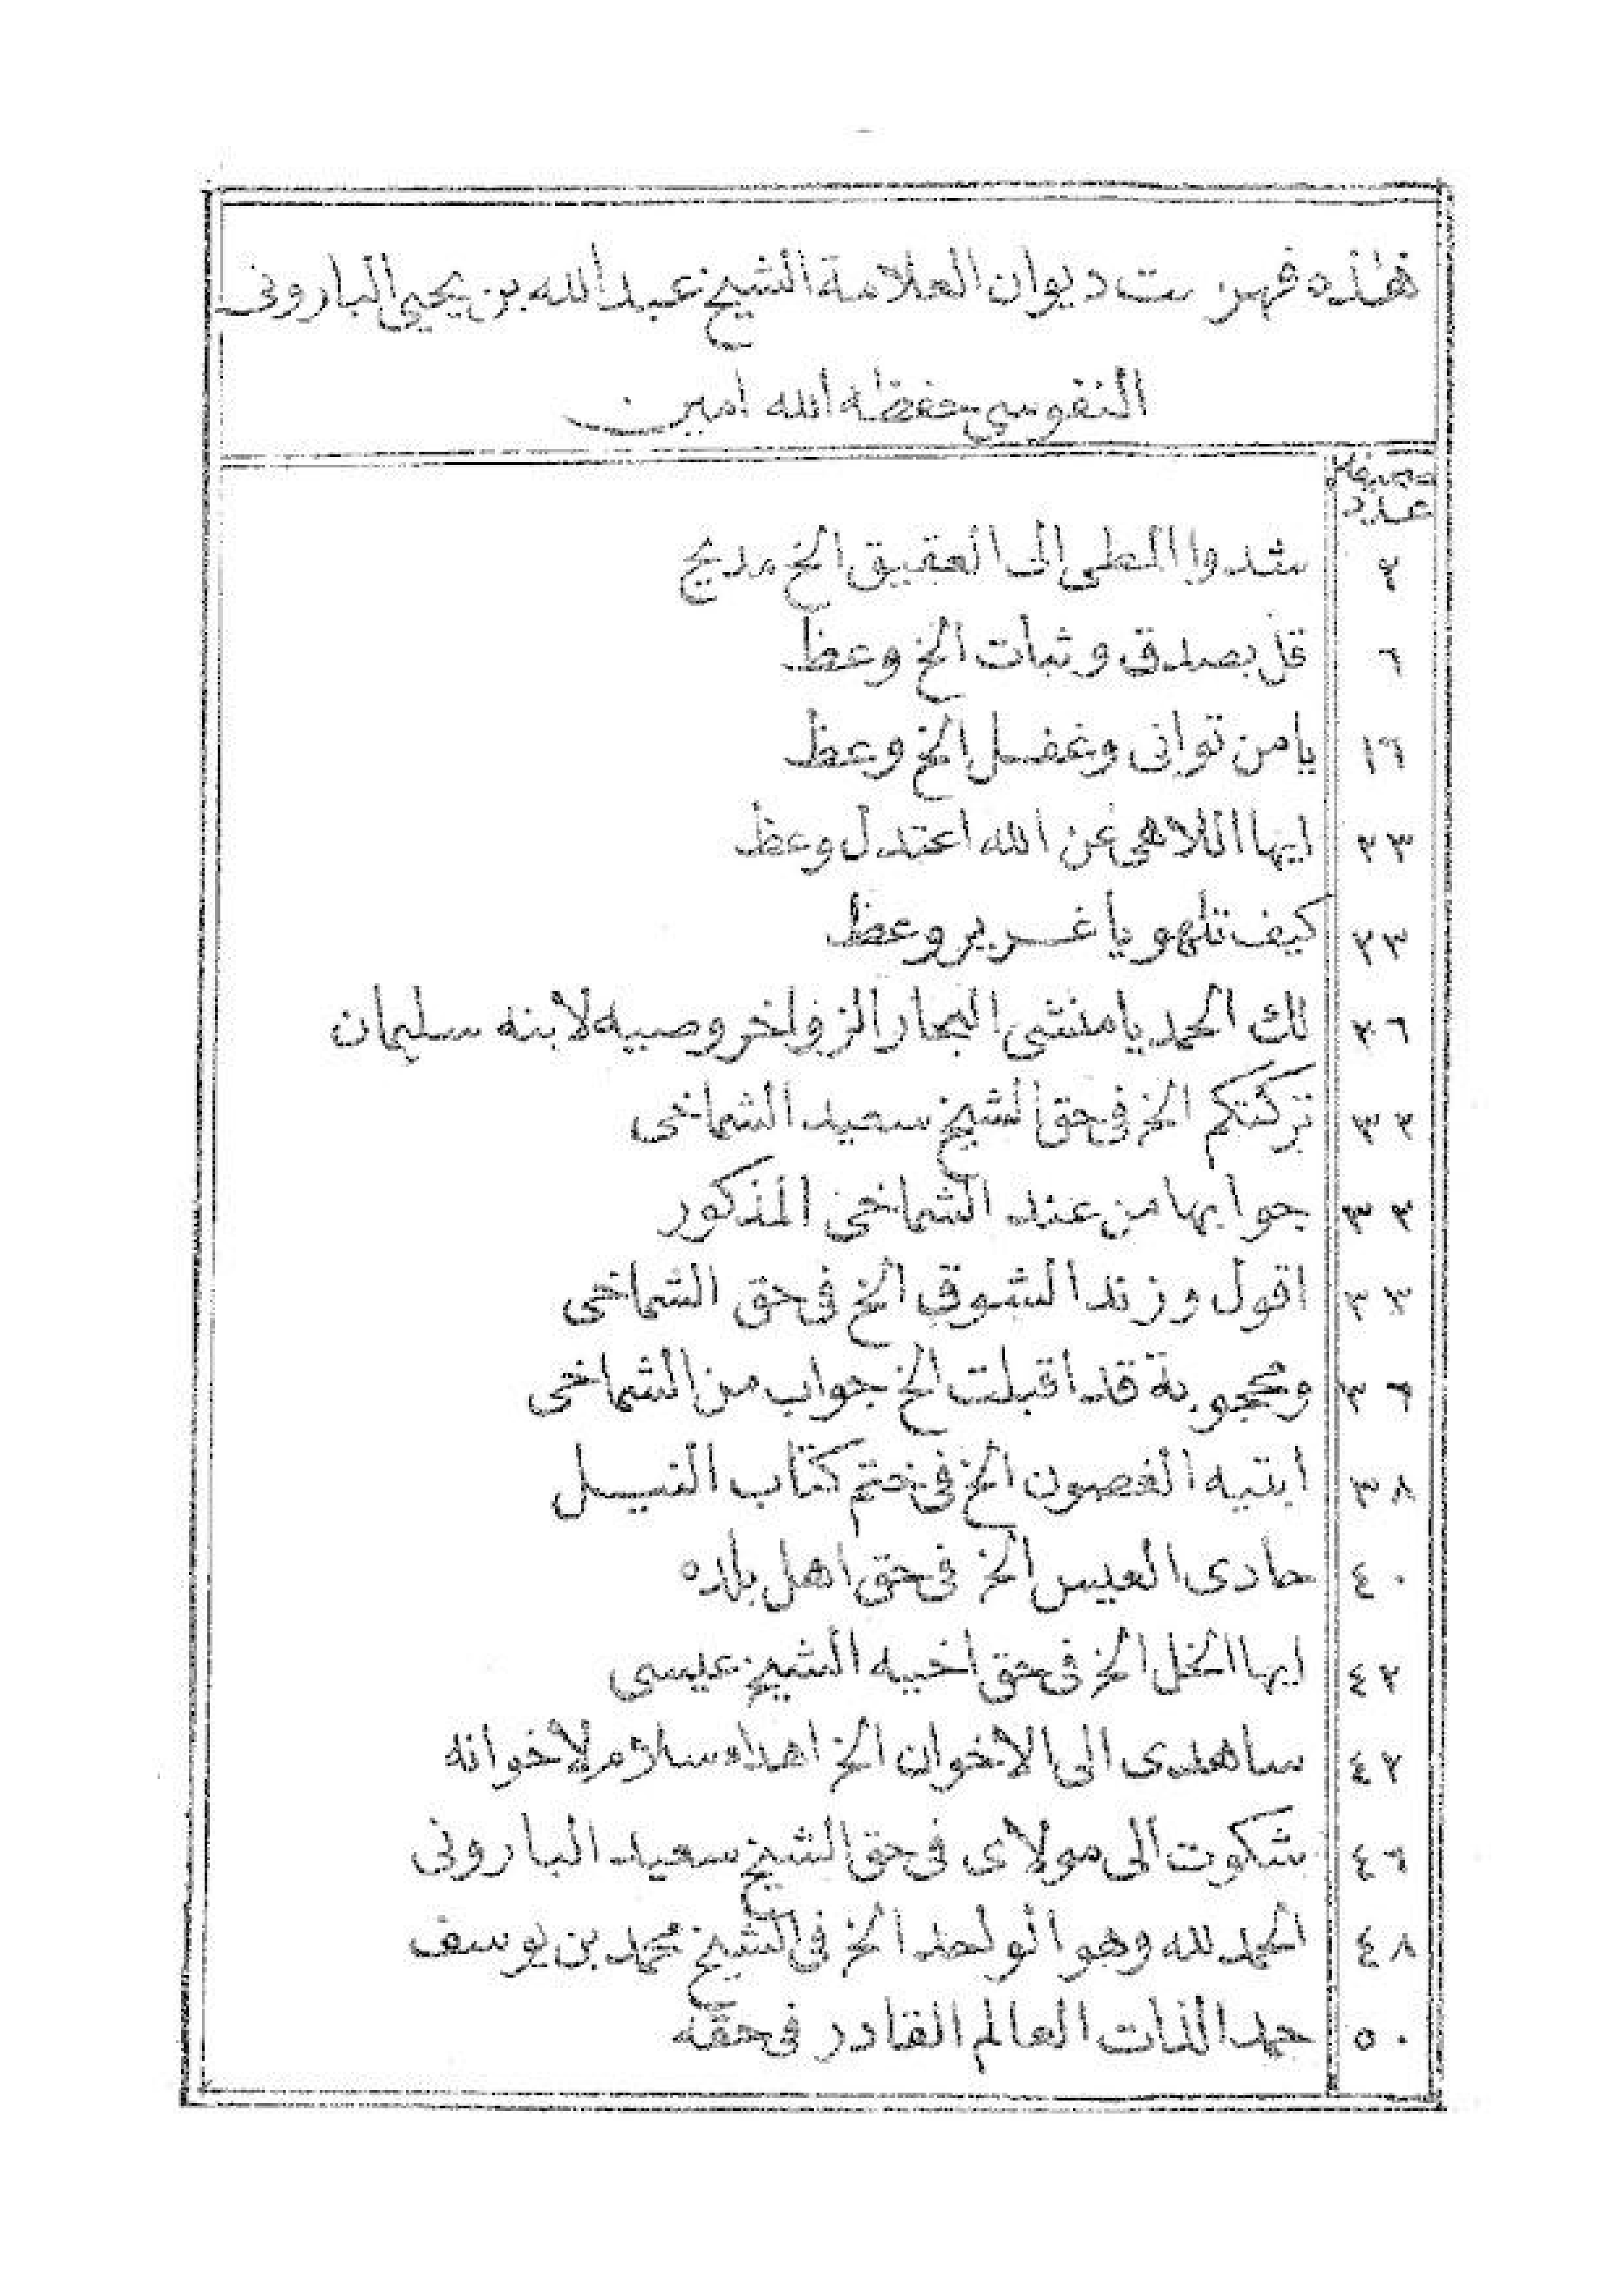 هذه فهرست ديوان العلامة الشيخ عبد الله بن يحيى البارونى
النفوسي حفظه الله امين
صحيفة
عدد
٢ شدوا المطى الى العقيق الخ مديح
٦ قل بصدق وثبات الخ وعظ
١٦ يا من توانى وغفل الخ وعظ
٢٣ ايها اللاهى عن الله اعتدل وعظ
٢٣ كيف تلهو يا غرير وعظ
٢٦ لك الحمد يا منشى البحار الزواخر وصيه لابنه سليمان
٣٢ تركتكم الخ فى حق الشيخ سعيد الشماخى
٣٣ جوابها من عند الشماخى المذكور
٣٣ اقول وزند الشوق الخ فى حق الشماخى
٣٦ ومحجوبة قد اقبلت الخ جواب من الشماخى
٣٨ الغصون الخ فى ختم كتاب النيل
٤٠ حادى العيس الخ فى حق اهل بلده
٤٢ ايها الخل الخ فى حق اخيه الشيخ عيسى
٤٢ ساهدى الى الاخوان الخ اهداء سلام لاخوانه
٤٦ شكوت الى مولاى فى حق الشيخ سعيد البارونى
٤٨ الحمد لله وهو الواحد الخ فى الشيخ محمد بن يوسف
٥٠ حمدا لذات العالم القادر فى حقه